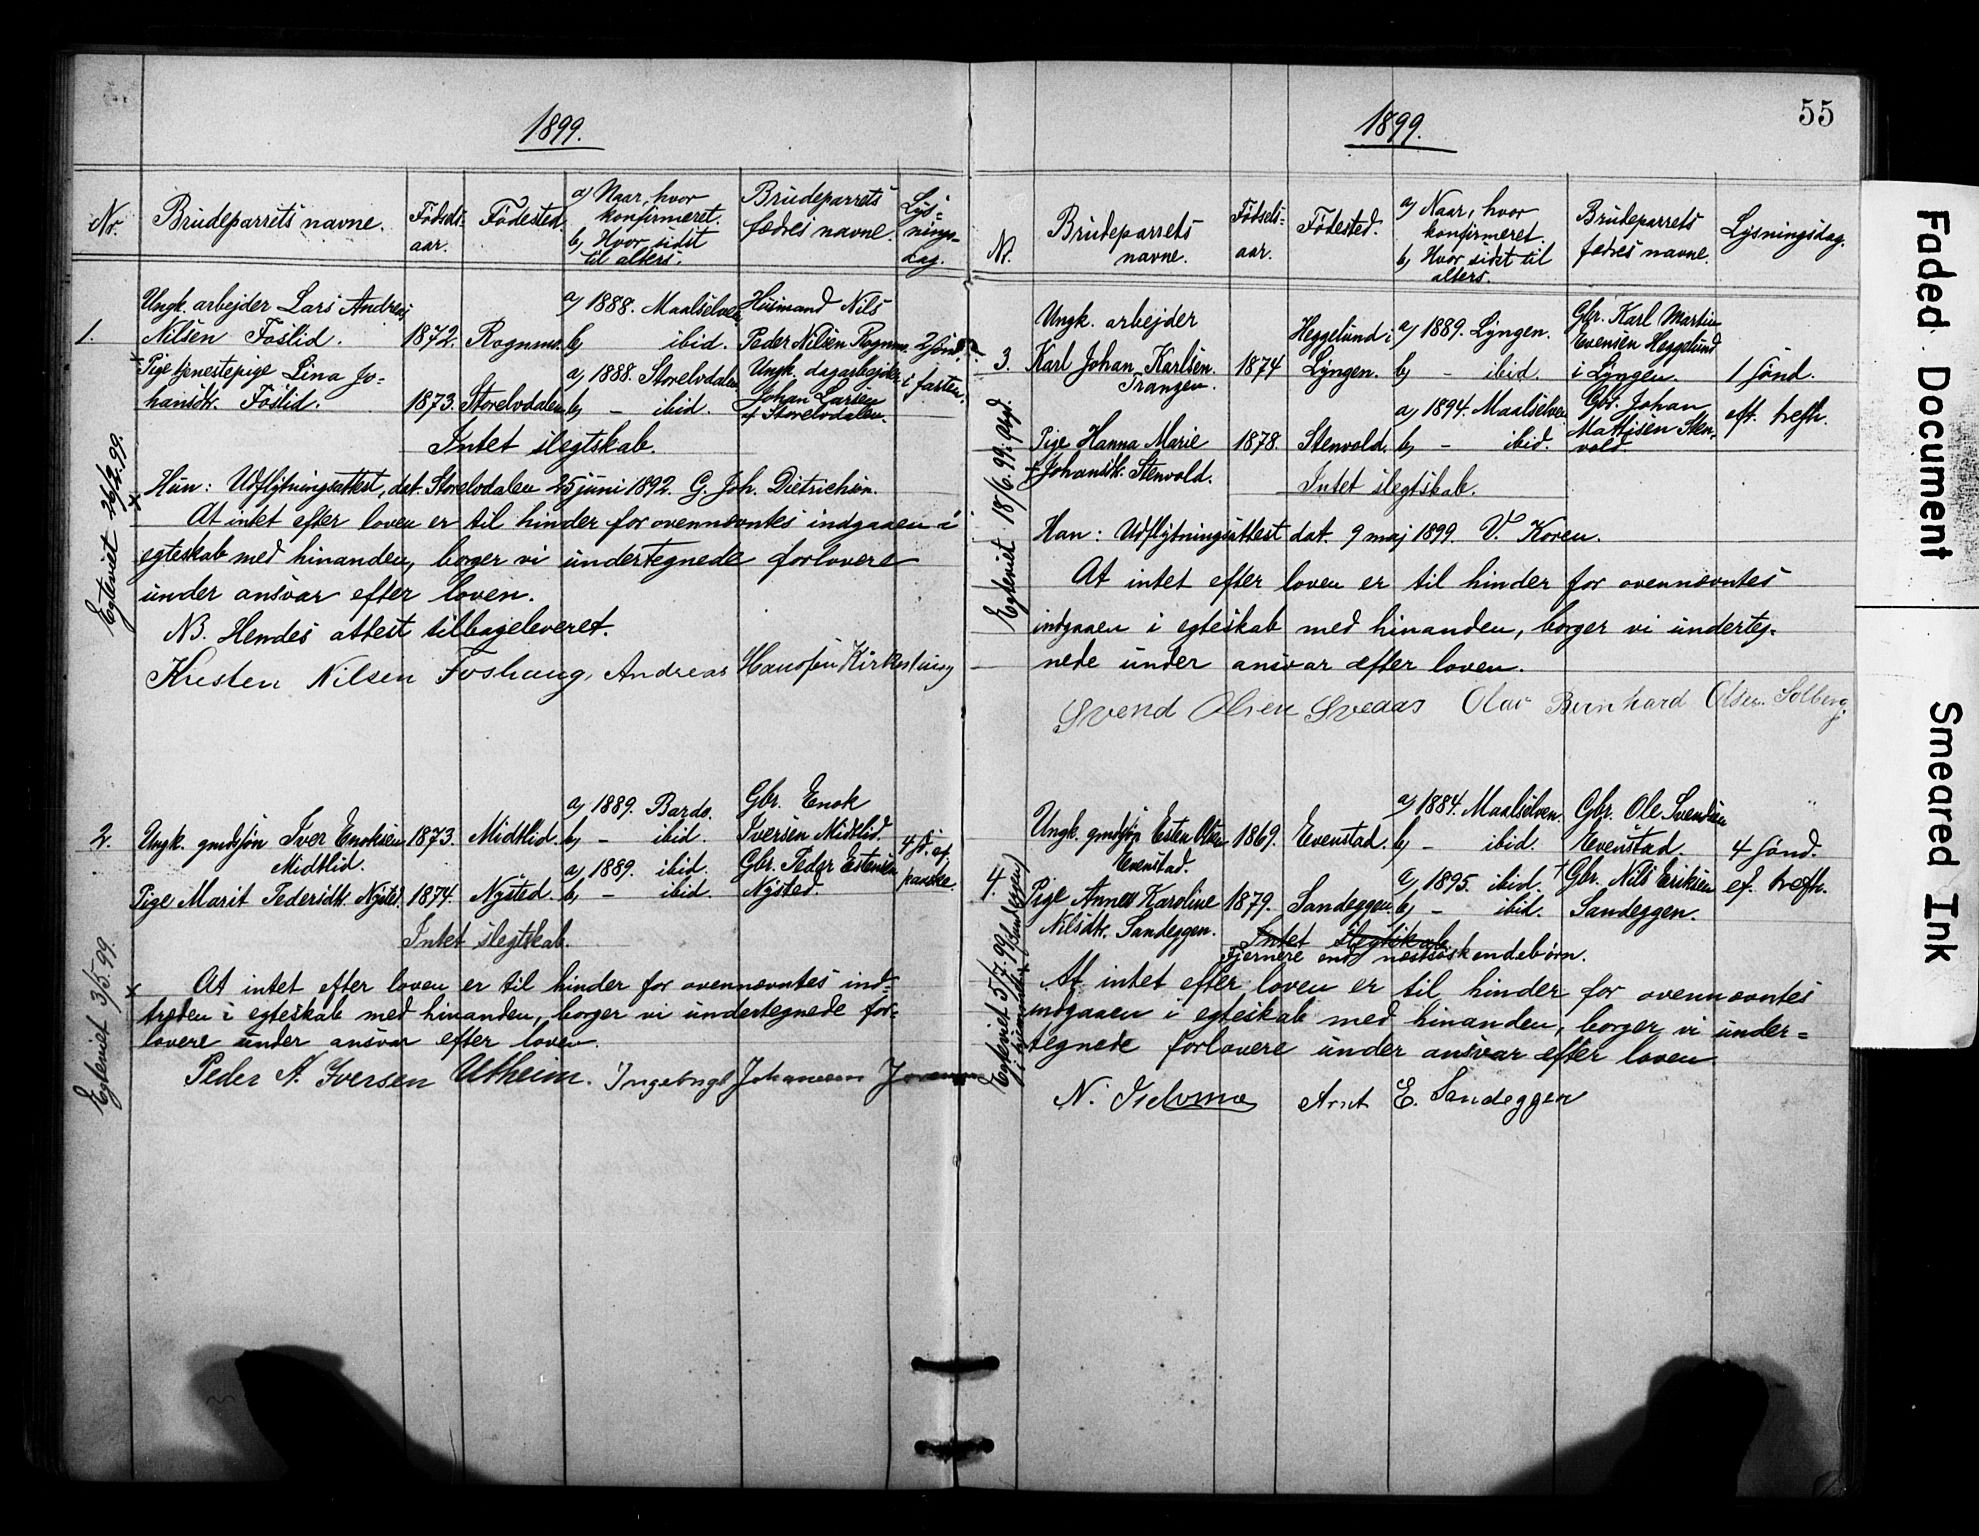 1899.
Nr.
Brudeparrets navne.
Fødsels-
aar.
Fødested.
a) Naar, hvor
konfirmeret.
b) Hvor sidst
til alters.
Brudeparrets
fædres navne.
Lys-
nings-
dag.
1.
Ungk. arbejder Lars Andreas
Nilsen Foslid.
1872.
Rognmo.
a) 1888. Maalselven
b) ibid.
Husmand Nils
Peder Nilsen Rognmo.
2 sønd.
i fasten.
Pige tjenestepige Lina Jo-
hansdtr. Foslid.
1873.
Storelvdalen
a) 1888. Storelvdalen
b) - ibid.
Ungk. dagarbejder
Johan Larsen
af Storelvdalen.
Intet slegtskab.
Egteviet 26/2. 99.
Hun: Udflytningsattest, dat. Storelvdalen 25 juni 1892. G. Joh. Dietrichson.
At intet efter loven er til hinder for ovennævntes indgaaen i
egteskab med hinanden, borger vi undertegnede forlovere
under ansvar efter loven.
NB. Hendes attest tilbageleveret.
Kristen Nilsen Foshaug, Andreas Hansen Kirkestuen
2.
Ungk. gmdsøn Iver Enoksen
Midtlid.
1873.
Midtlid.
a) 1889. Bardo.
b) - ibid.
Gbr. Enok
Iversen Midtlid.
4 s. ef.
paaske.
Pige Marit Pedersdtr. Nysted.
1874.
Nysted.
a) 1889. ibid.
b) - ibid.
Gbr. Peder Estensen
Nysted.
Intet slegtskab.
Egteviet 3/5. 99.
At intet efter loven er til hinder for ovennævntes ind-
træden i egteskab med hinanden, borger vi undertegnede for-
lovere under ansvar efter loven.
Peder A. Iversen Utheim. Ingebrigt Johannesen
55
1899.
Nr.
Brudeparrets
navne.
Fødsels-
aar.
Fødested.
a) Naar, hvor
konfirmeret
b) Hvor sidst til
alters.
Brudeparrets
fædres navne.
Lysningsdag.
3.
Ungk. arbejder
Karl Johan Karlsen
Tranzen.
1874
Heggelund i
Lyngen.
a) 1889. Lyngen.
b) - ibid.
Gbr. Karl Martin
Evensen Heggelund
i Lyngen.
1 sønd.
eft. trefh.
Pige Hanna Marie
Johansdtr. Stenvold.
1878.
Stenvold.
a) 1894. Maalselven
b) - ibid.
Gbr. Johan
Mathisen Sten-
vold.
Intet slegtskab.
Egteviet 18/6. 99.
Han: Udflytningsattest dat. 9 maj 1899. V. Koren.
At intet efter loven er til hinder for ovennævntes
indgaaen i egteskab med hinanden, borger vi underteg-
nede under ansvar efter loven.
Svend Olsen Sveaas Olav Bernhard Olsen Solberg.
4.
Ungk. gmdsøn Esten Olsen
Evenstad.
1869.
Evenstad.
a) 1884. Maalselven.
b) - ibid.
Gbr. Ole Svendsen
Evenstad.
4 sønd.
ef. trefh.
Pige Anne Karoline
Nilsdtr. Sandeggen.
1879.
Sandeggen.
a) 1895. ibid.
b) - ibid.
† Gbr. Nils Eriksen
Sandeggen.
Intet slegtskab
Fjernere end næstsøskendebørn.
Egteviet 5/7. 99
At intet efter loven er til hinder for ovennævntes
indgaaen i egteskab med hinanden, borger vi under-
tegnede forlovere under ansvar efter loven.
N. Arnt E. Sandeggen
Faded Document
Smeared Ink